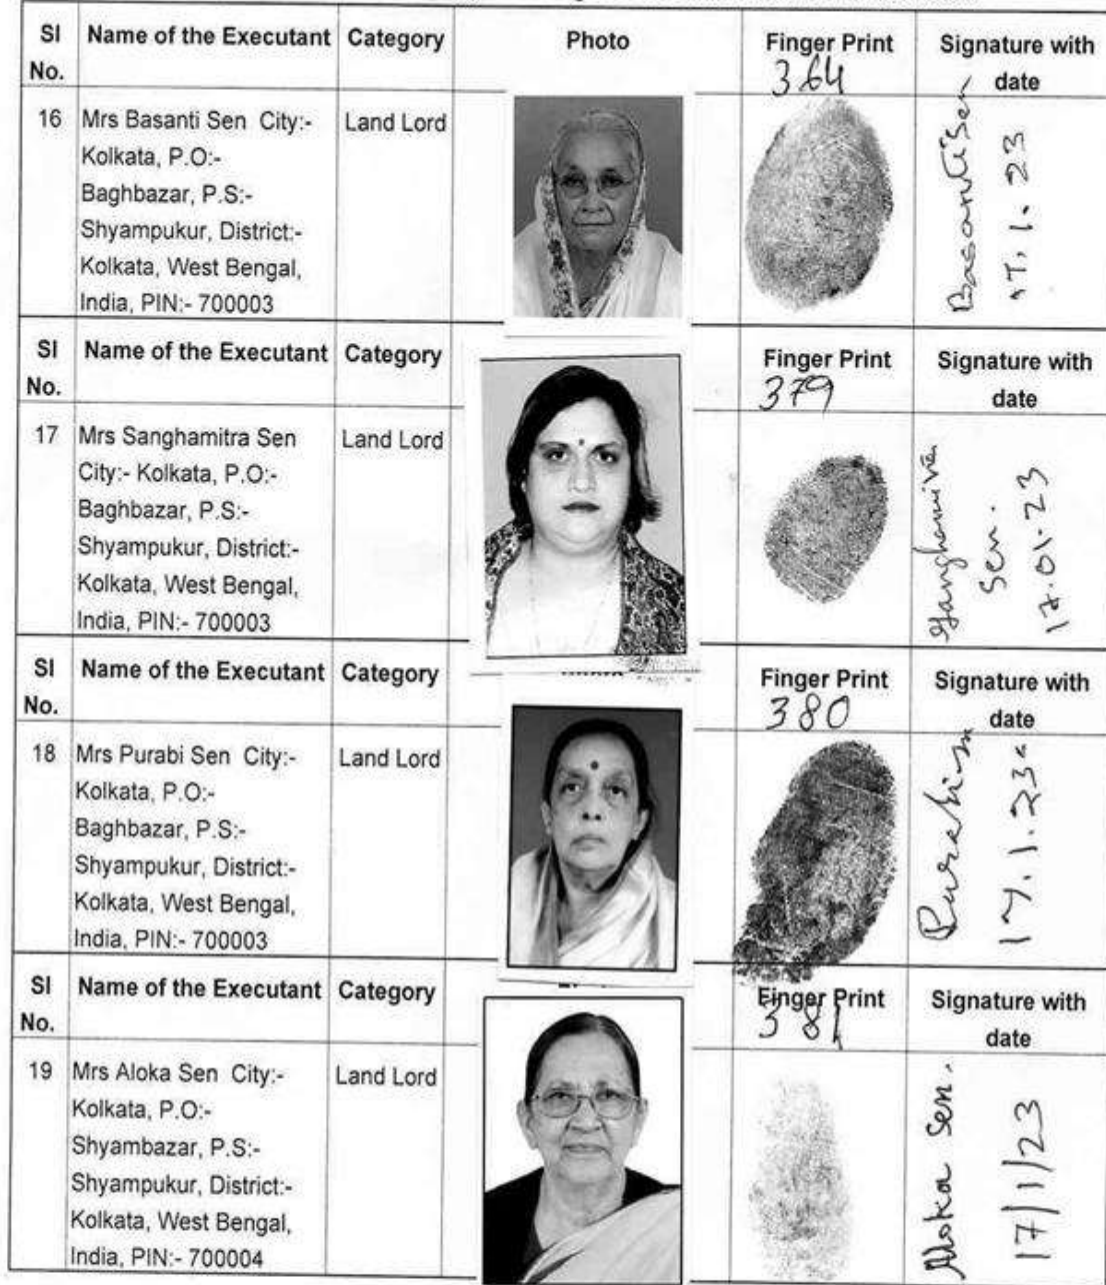 Sl No.
Name of the Executant
Category
Photo
Finger Print
364
Signature with date
16
Mrs Basanti Sen City:-
Kolkata, P.O:-
Baghbazar, P.S:-
Shyampukur, District:-
Kolkata, West Bengal,
India, PIN:- 700003
Land Lord
Basanti Sen
17.1.23
Sl No.
Name of the Executant
Category
Finger Print
379
Signature with date
17
Mrs Sanghamitra Sen
City:- Kolkata, P.O:-
Baghbazar, P.S:-
Shyampukur, District:-
Kolkata, West Bengal,
India, PIN:- 700003
Land Lord
Sanghamitra
Sen.
17.01.23
Sl No.
Name of the Executant
Category
Finger Print
380
Signature with date
18
Mrs Purabi Sen City:-
Kolkata, P.O:-
Baghbazar, P.S:-
Shyampukur, District:-
Kolkata, West Bengal,
India, PIN:- 700003
Land Lord
Purabi Sen
17.1.23
Sl No.
Name of the Executant
Category
Finger Print
381
Signature with date
19
Mrs Aloka Sen City:-
Kolkata, P.O:-
Shyambazar, P.S:-
Shyampukur, District:-
Kolkata, West Bengal,
India, PIN:- 700004
Land Lord
Aloka Sen.
17/1/23